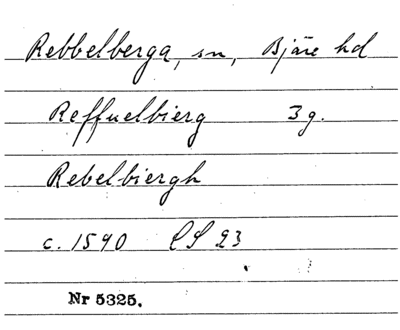 Rebbelberga, sn, Bjäre hd
Reffuelbierg 3 g.
Rebelbiergh
c. 1590 LS 23
Nr 5325.